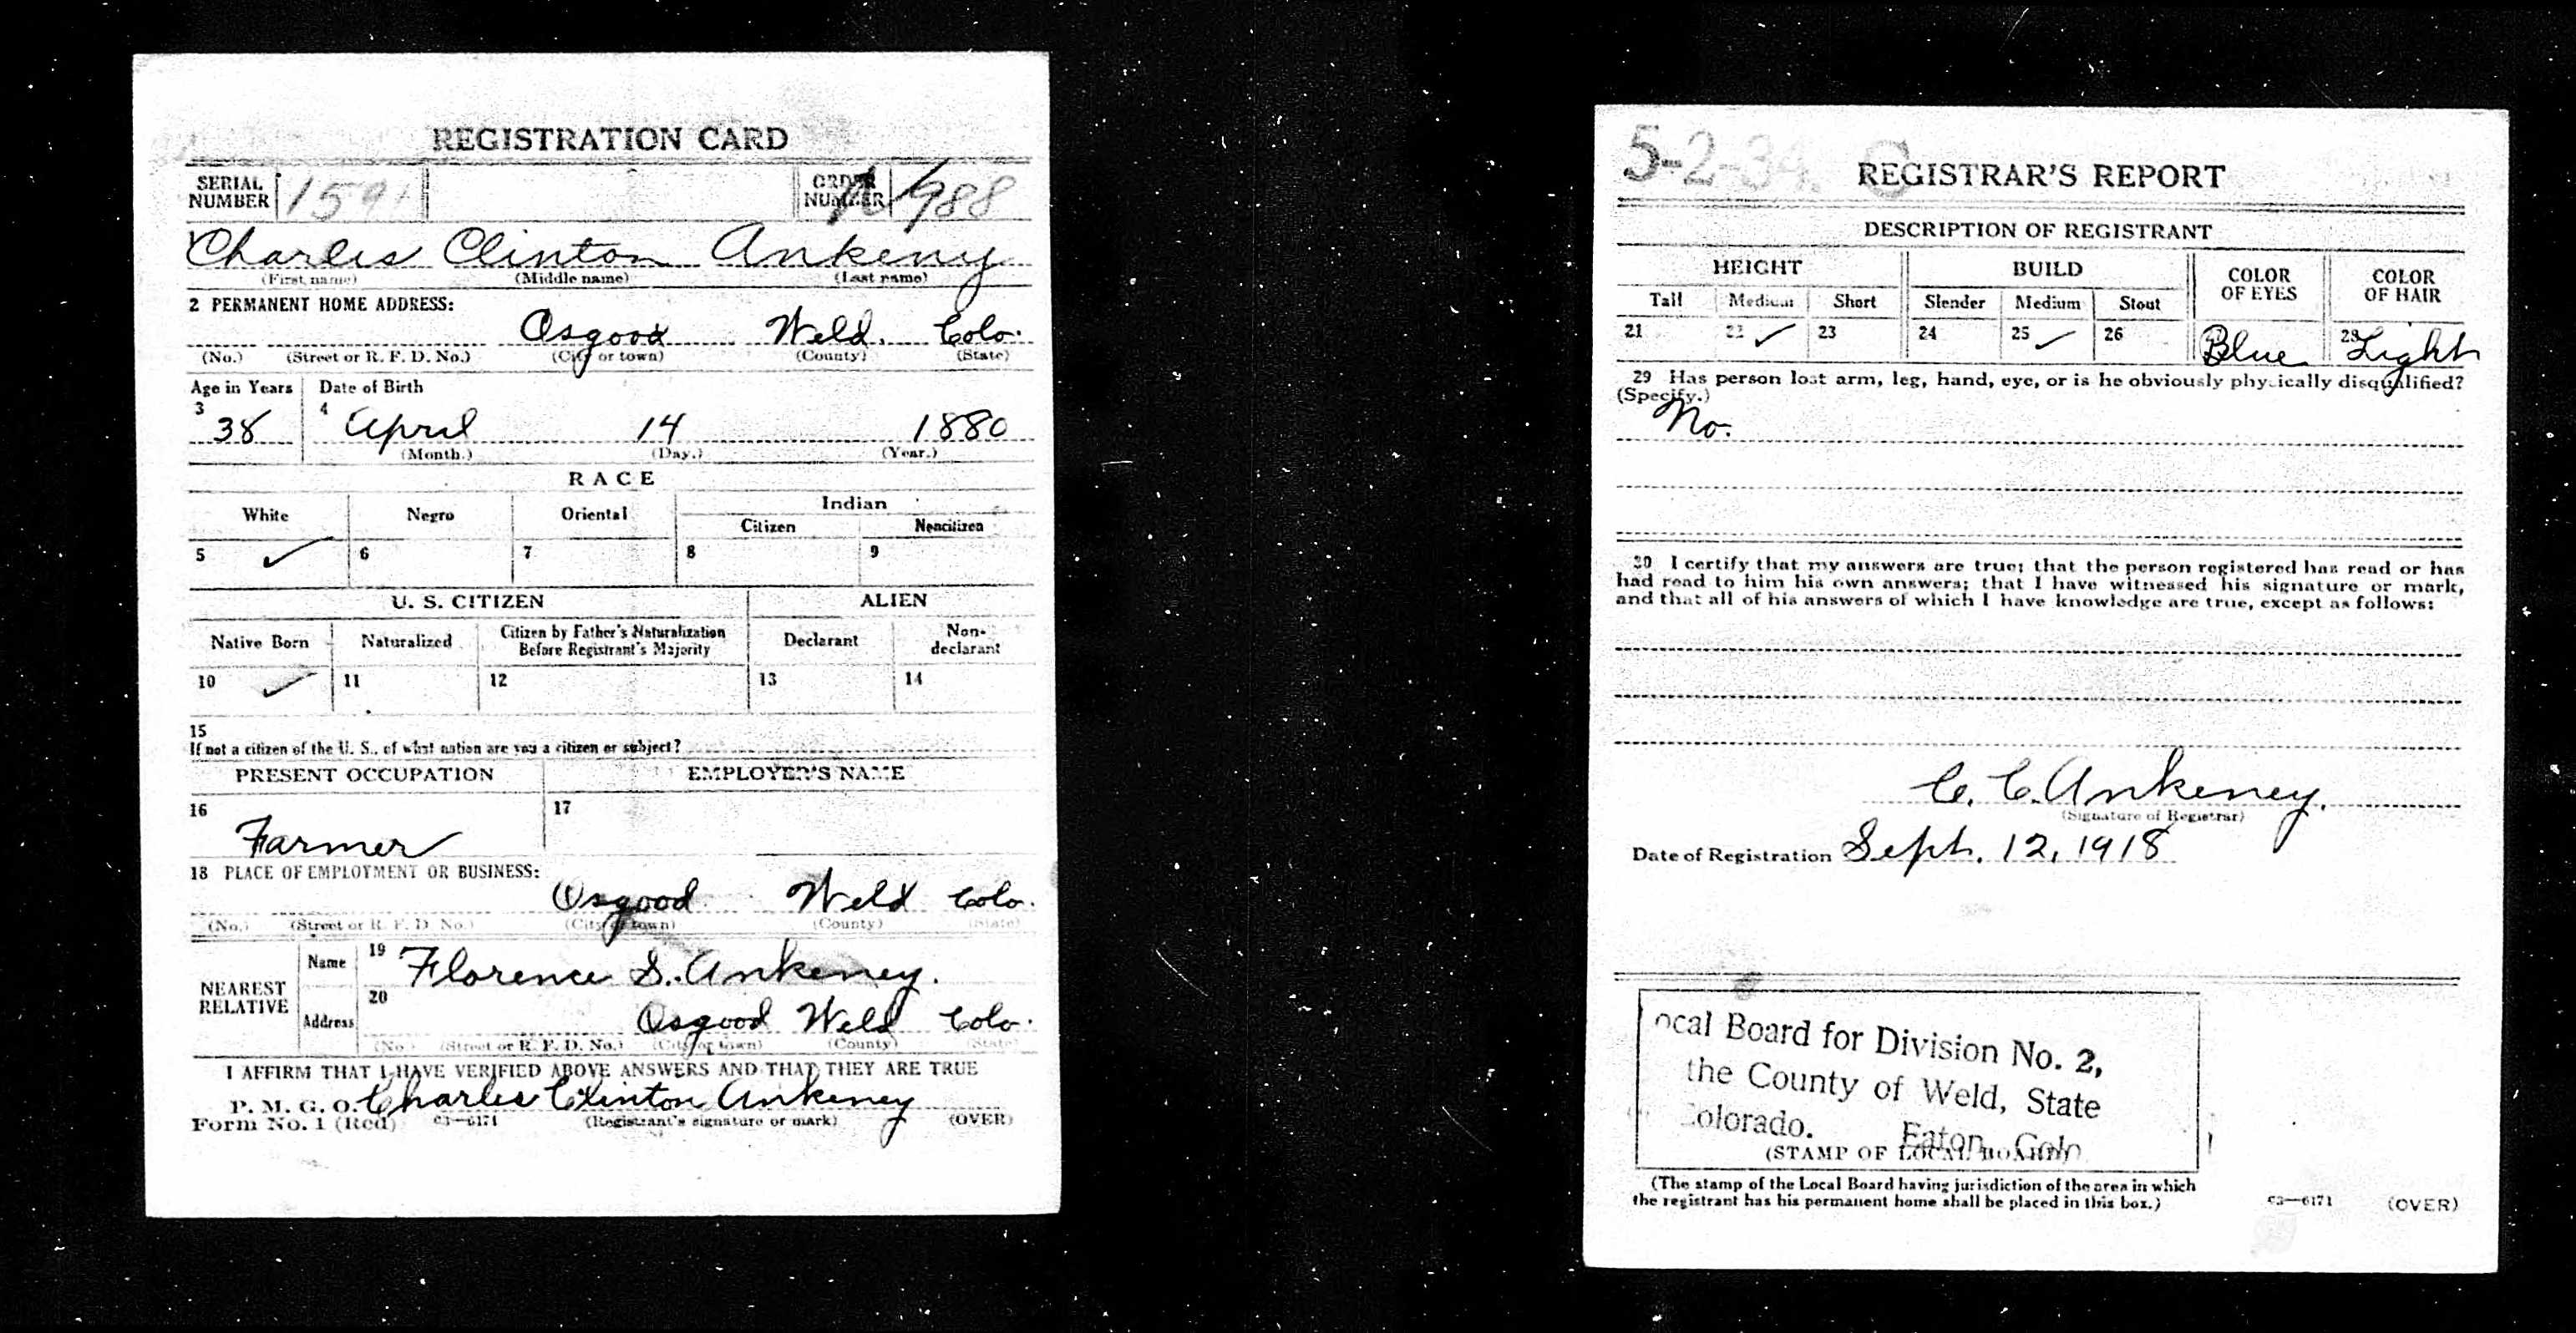 REGISTRATION CARD
SERIAL NUMBER 159
ORDER NUMBER 988
Charles Clinton Ankeny
(First name) (Middle name) (Last name)
2 PERMANENT HOME ADDRESS:
Osgood Weld. Colo.
(No.) (Street or R. F. D. No.) (City or town) (County) (State)
Age in Years Date of Birth
3 38 4 April 14 1880
(Month.) (Day.) (Year.)
RACE
White Negro Oriental Indian
Citizen Noncitizen
5 ✓ 6 7 8 9
U. S. CITIZEN ALIEN
Native Born Naturalized Citizen by Father's Naturalization Before Registrant's Majority Declarant Non-declarant
10 ✓ 11 12 13 14
15
If not a citizen of the U. S., of what nation are you a citizen or subject?
PRESENT OCCUPATION EMPLOYER'S NAME
16 Farmer 17
18 PLACE OF EMPLOYMENT OR BUSINESS:
Osgood Weld Colo.
(No.) (Street or R. F. D. No.) (City or town) (County) (State)
NEAREST RELATIVE
Name 19 Florence S. Ankeney.
Address 20 Osgood Weld Colo.
(No.) (Street or R. F. D. No.) (City or town) (County) (State)
I AFFIRM THAT I HAVE VERIFIED ABOVE ANSWERS AND THAT THEY ARE TRUE
P. M. G. O. Charles Clinton Ankeney
Form No. 1 (Red) 03—6171 (Registrant's signature or mark) (OVER)
5-2-34. C
REGISTRAR'S REPORT
DESCRIPTION OF REGISTRANT
HEIGHT BUILD COLOR OF EYES COLOR OF HAIR
Tall Medium Short Slender Medium Stout
21 22 ✓ 23 24 25 ✓ 26 Blue 28 Light
29 Has person lost arm, leg, hand, eye, or is he obviously physically disqualified?
(Specify.)
No.
30 I certify that my answers are true; that the person registered has read or has
had read to him his own answers; that I have witnessed his signature or mark,
and that all of his answers of which I have knowledge are true, except as follows:
C. C. Ankeney.
(Signature of Registrar)
Date of Registration Sept. 12, 1918
ocal Board for Division No. 2,
the County of Weld, State
olorado. Eaton, Colo
(STAMP OF LOCAL BOARD)
(The stamp of the Local Board having jurisdiction of the area in which
the registrant has his permanent home shall be placed in this box.)
03—6171 (OVER)